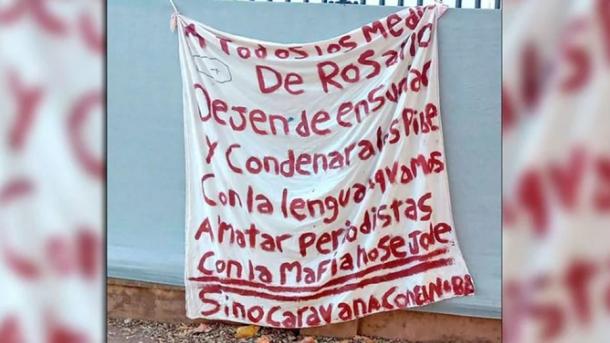 A TODOS LOS MEDI
DE ROSARIO
DEJEN DE ENSUCIAR
Y CONDENAR A LOS PIBE
CON LA LENGUA QVAMOS
A MATAR PERIODISTAS
CON LA MAFIA NO SE JODE
SINO CARAVANA CON